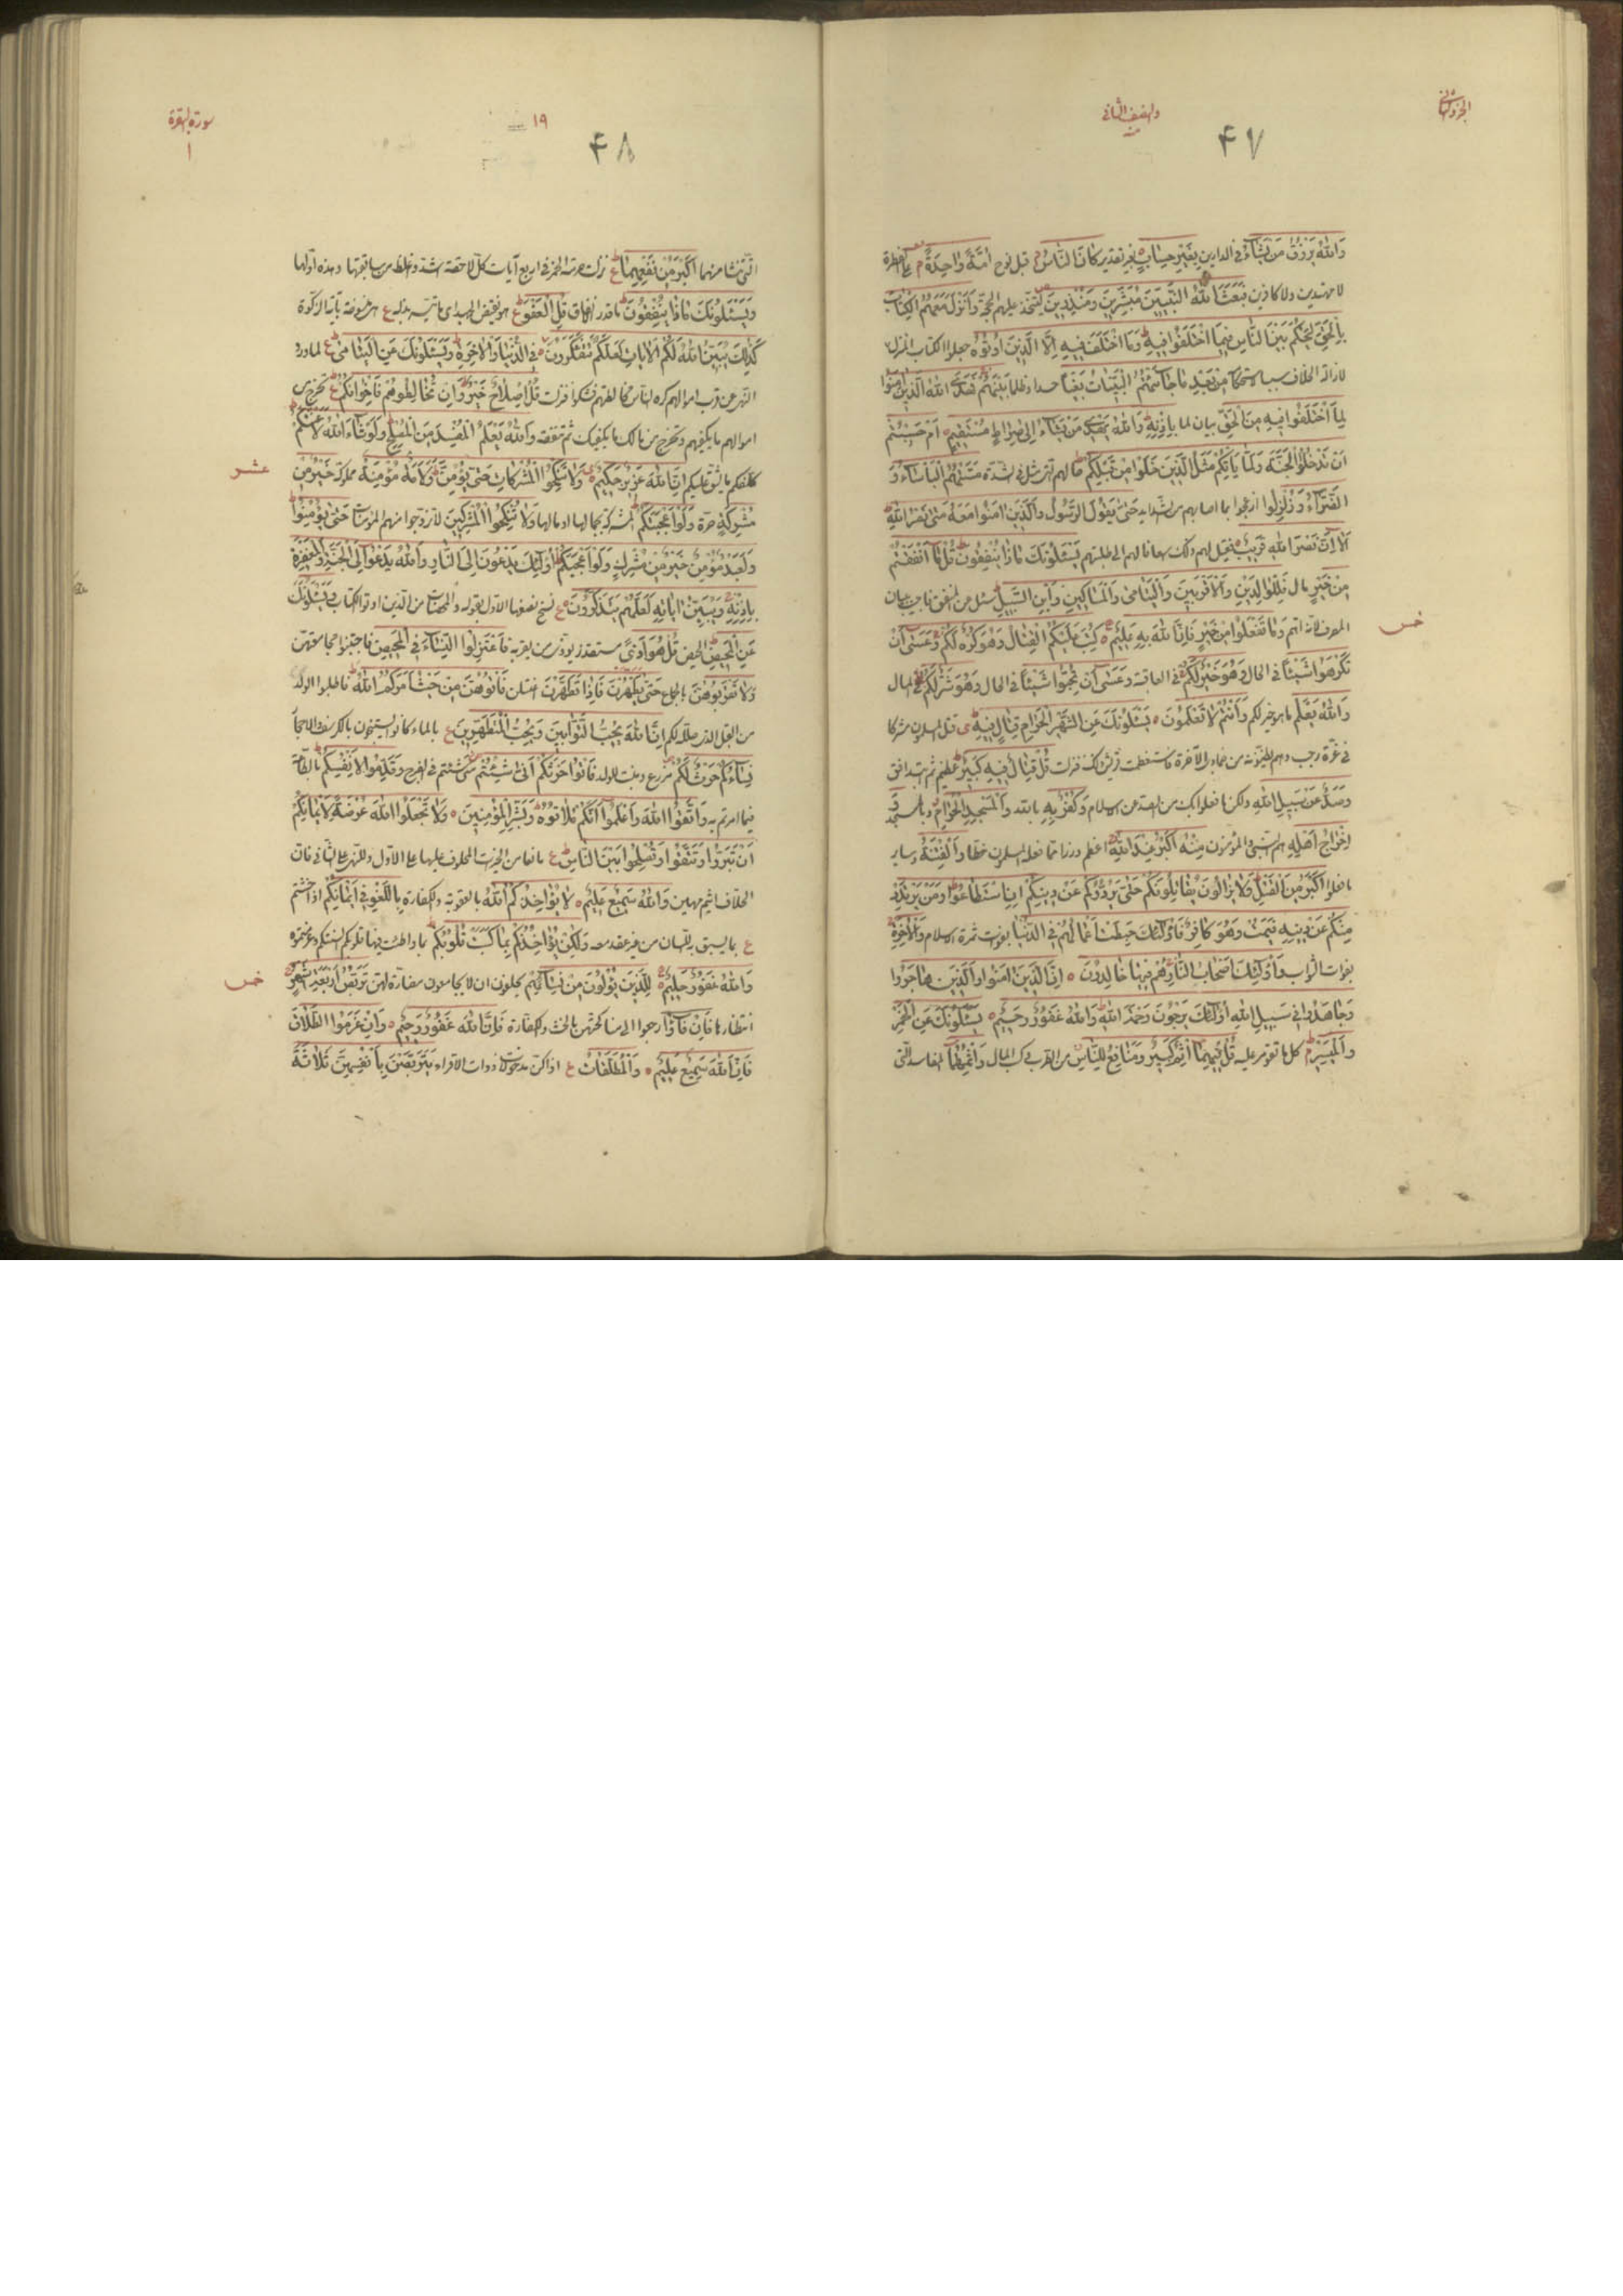 الجزو الثانی
والنصف الثانی
۴۷
وَاللّٰهُ یَرْزُقُ مَنْ یَشَاءُ فی الدارین بِغَیْرِ حِسَابٍ بغیر تقدیر كَانَ النَّاسُ قبل نوح اُمَّةً وَاحِدَةً علی الفطرة
لا مهتدین ولا كافرین فَبَعَثَ اللّٰهُ النَّبِیّینَ مُبَشِّرِینَ وَمُنْذِرِینَ لیتخذ علیهم الحجة وَاَنْزَلَ مَعَهُمُ الْكِتَابَ
بِالْحَقِّ لِیَحْكُمَ بَیْنَ النَّاسِ فِیمَا اخْتَلَفُوا فِیهِ وَمَا اخْتَلَفَ فِیهِ اِلَّا الَّذِینَ اُوتُوهُ جعلوا الكتاب المنزل
لازالة الخلاف سببا لاستحكامه مِنْ بَعْدِ مَا جَاءَتْهُمُ الْبَیِّنَاتُ بَغْیًا حسدا وظلما بَیْنَهُمْ فَهَدَی اللّٰهُ الَّذِینَ اٰمَنُوا
لِمَا اخْتَلَفُوا فِیهِ مِنَ الْحَقِّ بیان لما بِاِذْنِهِ وَاللّٰهُ یَهْدِی مَنْ یَشَاءُ اِلَی صِرَاطٍ مُسْتَقِیمٍ اَمْ حَسِبْتُمْ
اَنْ تَدْخُلُوا الْجَنَّةَ وَلَمَّا یَاْتِكُمْ مَثَلُ الَّذِینَ خَلَوْا مِنْ قَبْلِكُمْ حالهم التی هی مثل فی الشدة مَسَّتْهُمُ الْبَاْسَاءُ وَ
الضَّرَّاءُ وَزُلْزِلُوا ازعجوا بما اصابهم من الشداید حَتَّی یَقُولَ الرَّسُولُ وَالَّذِینَ اٰمَنُوا مَعَهُ مَتَی نَصْرُ اللّٰهِ
اَلَا اِنَّ نَصْرَ اللّٰهِ قَرِیبٌ فقیل لهم ذلك اسعافا لهم الی طلبتهم یَسْئَلُونَكَ مَاذَا یُنْفِقُونَ قُلْ مَا اَنْفَقْتُمْ
مِنْ خَیْرٍ مال فَلِلْوَالِدَیْنِ وَالْاَقْرَبِینَ وَالْیَتَامَی وَالْمَسَاكِینِ وَابْنِ السَّبِیلِ سئل عن المنفق فاجیب ببیان
المصرف لانه اهم وَمَا تَفْعَلُوا مِنْ خَیْرٍ فَاِنَّ اللّٰهَ بِهِ عَلِیمٌ كُتِبَ عَلَیْكُمُ الْقِتَالُ وَهُوَ كُرْهٌ لَكُمْ وَعَسَی اَنْ
تَكْرَهُوا شَیْئًا فی الحال وَهُوَ خَیْرٌ لَكُمْ فی العاقبة وَعَسَی اَنْ تُحِبُّوا شَیْئًا فی الحال وَهُوَ شَرٌّ لَكُمْ فی المال
وَاللّٰهُ یَعْلَمُ ما هو خیر لكم وَاَنْتُمْ لَا تَعْلَمُونَ یَسْئَلُونَكَ عَنِ الشَّهْرِ الْحَرَامِ قِتَالٍ فِیهِ قتل المسلمون مشركا
فی غرة رجب وهم یظنونه من جمادی الآخرة فاستعظمت قریش ذلك فنزلت قُلْ قِتَالٌ فِیهِ كَبِیرٌ عظیم ثم ابتدا
وَصَدٌّ عَنْ سَبِیلِ اللّٰهِ ولكن ما فعلوا بك من الصد عن الاسلام وَكُفْرٌ بِهِ بالله وَالْمَسْجِدِ الْحَرَامِ
اِخْرَاجُ اَهْلِهِ هم النبی والمؤمنون مِنْهُ اَكْبَرُ عِنْدَ اللّٰهِ اعظم وزرا مما فعله المسلمون خطأ وَالْفِتْنَةُ وسایر
ما فعلوا اَكْبَرُ مِنَ الْقَتْلِ وَلَا یَزَالُونَ یُقَاتِلُونَكُمْ حَتَّی یَرُدُّوكُمْ عَنْ دِینِكُمْ اِنِ اسْتَطَاعُوا وَمَنْ یَرْتَدِدْ
مِنْكُمْ عَنْ دِینِهِ فَیَمُتْ وَهُوَ كَافِرٌ فَاُولٰئِكَ حَبِطَتْ اَعْمَالُهُمْ فِی الدُّنْیَا بفوات ثمرة الاسلام وَالْاٰخِرَةِ
بفوات الثواب وَاُولٰئِكَ اَصْحَابُ النَّارِ هُمْ فِیهَا خَالِدُونَ اِنَّ الَّذِینَ اٰمَنُوا وَالَّذِینَ هَاجَرُوا
وَجَاهَدُوا فِی سَبِیلِ اللّٰهِ اُولٰئِكَ یَرْجُونَ رَحْمَةَ اللّٰهِ وَاللّٰهُ غَفُورٌ رَحِیمٌ یَسْئَلُونَكَ عَنِ الْخَمْرِ
وَالْمَیْسِرِ كل ما تقومر علیه قُلْ فِیهِمَا اِثْمٌ كَبِیرٌ وَمَنَافِعُ لِلنَّاسِ من الطرب وكسب المال وَاِثْمُهُمَا المفاسد التی
خمس
سورة البقرة
۱
۱۹
۴۸
التی تنشا منهما اَكْبَرُ مِنْ نَفْعِهِمَا نزلت حرمة الخمر فی اربع آیات كل لاحقة اشد واغلظ من سابقتها وهذه اولها
وَیَسْئَلُونَكَ مَاذَا یُنْفِقُونَ ما قدر انفاق قُلِ الْعَفْوَ هو نقیض الجهد ای ما تیسر بذله
كَذٰلِكَ یُبَیِّنُ اللّٰهُ لَكُمُ الْاٰیَاتِ لَعَلَّكُمْ تَتَفَكَّرُونَ فِی الدُّنْیَا وَالْاٰخِرَةِ وَیَسْئَلُونَكَ عَنِ الْیَتَامَی لما ورد
النهی عن قرب اموالهم كره الناس مخالطتهم فشكوا فنزلت قُلْ اِصْلَاحٌ لَهُمْ خَیْرٌ وَاِنْ تُخَالِطُوهُمْ فَاِخْوَانُكُمْ تخرج من
اموالهم ما یكفیهم وتخرج من مالك ما یكفیك ثم تنفقه وَاللّٰهُ یَعْلَمُ الْمُفْسِدَ مِنَ الْمُصْلِحِ وَلَوْ شَاءَ اللّٰهُ لَاَعْنَتَكُمْ
كلفكم ما یشق علیكم اِنَّ اللّٰهَ عَزِیزٌ حَكِیمٌ وَلَا تَنْكِحُوا الْمُشْرِكَاتِ حَتَّی یُؤْمِنَّ وَلَاَمَةٌ مُؤْمِنَةٌ مملوكة خَیْرٌ مِنْ
مُشْرِكَةٍ حرة وَلَوْ اَعْجَبَتْكُمْ المشركة بجمالها او مالها وَلَا تُنْكِحُوا الْمُشْرِكِینَ لا تزوجوا منهم المؤمنات حَتَّی یُؤْمِنُوا
وَلَعَبْدٌ مُؤْمِنٌ خَیْرٌ مِنْ مُشْرِكٍ وَلَوْ اَعْجَبَكُمْ اُولٰئِكَ یَدْعُونَ اِلَی النَّارِ وَاللّٰهُ یَدْعُوا اِلَی الْجَنَّةِ وَالْمَغْفِرَةِ
بِاِذْنِهِ وَیُبَیِّنُ اٰیَاتِهِ لِلنَّاسِ لَعَلَّهُمْ یَتَذَكَّرُونَ نسخ نصفها الاول بقوله والمحصنات من الذین اوتوا الكتاب وَیَسْئَلُونَكَ
عَنِ الْمَحِیضِ الحیض قُلْ هُوَ اَذًی مستقذر یؤذی من یقربه فَاعْتَزِلُوا النِّسَاءَ فِی الْمَحِیضِ فاجتنبوا مجامعتهن
وَلَا تَقْرَبُوهُنَّ بالجماع حَتَّی یَطْهُرْنَ فَاِذَا تَطَهَّرْنَ اغتسلن فَاْتُوهُنَّ مِنْ حَیْثُ اَمَرَكُمُ اللّٰهُ فاطلبوا الولد
من القبل الذی حلله لكم اِنَّ اللّٰهَ یُحِبُّ التَّوَّابِینَ وَیُحِبُّ الْمُتَطَهِّرِینَ بالماء كانوا یستنجون بالكرسف والاحجار
نِسَاؤُكُمْ حَرْثٌ لَكُمْ مزرع ومنبت للولد فَاْتُوا حَرْثَكُمْ اَنَّی شِئْتُمْ متی شئتم فی الفرج وَقَدِّمُوا لِاَنْفُسِكُمْ بالطاعة
فیما امرتم به وَاتَّقُوا اللّٰهَ وَاعْلَمُوا اَنَّكُمْ مُلَاقُوهُ وَبَشِّرِ الْمُؤْمِنِینَ وَلَا تَجْعَلُوا اللّٰهَ عُرْضَةً لِاَیْمَانِكُمْ
اَنْ تَبَرُّوا وَتَتَّقُوا وَتُصْلِحُوا بَیْنَ النَّاسِ مانعا من الخیرات المحلوف علیها علی الاول وللنهی علی الثانی فان
الحلاف اثیم مهین وَاللّٰهُ سَمِیعٌ عَلِیمٌ لَا یُؤَاخِذُكُمُ اللّٰهُ بالعقوبة والكفارة بِاللَّغْوِ فِی اَیْمَانِكُمْ اذا حنثتم
بما یسبق به اللسان من غیر عقد معه وَلٰكِنْ یُؤَاخِذُكُمْ بِمَا كَسَبَتْ قُلُوبُكُمْ بما واطئت فیها قلوبكم السنتكم وعزمتموه
وَاللّٰهُ غَفُورٌ حَلِیمٌ لِلَّذِینَ یُؤْلُونَ مِنْ نِسَائِهِمْ یحلفون ان لا یجامعوهن مضارة لهن تَرَبُّصُ اَرْبَعَةِ اَشْهُرٍ
انتظارها فَاِنْ فَاءُوا رجعوا الی مناكحتهن بالحنث والكفارة فَاِنَّ اللّٰهَ غَفُورٌ رَحِیمٌ وَاِنْ عَزَمُوا الطَّلَاقَ
فَاِنَّ اللّٰهَ سَمِیعٌ عَلِیمٌ وَالْمُطَلَّقَاتُ اذا كن مدخولا ذوات الاقراء یَتَرَبَّصْنَ بِاَنْفُسِهِنَّ ثَلَاثَةَ
عشر
خمس